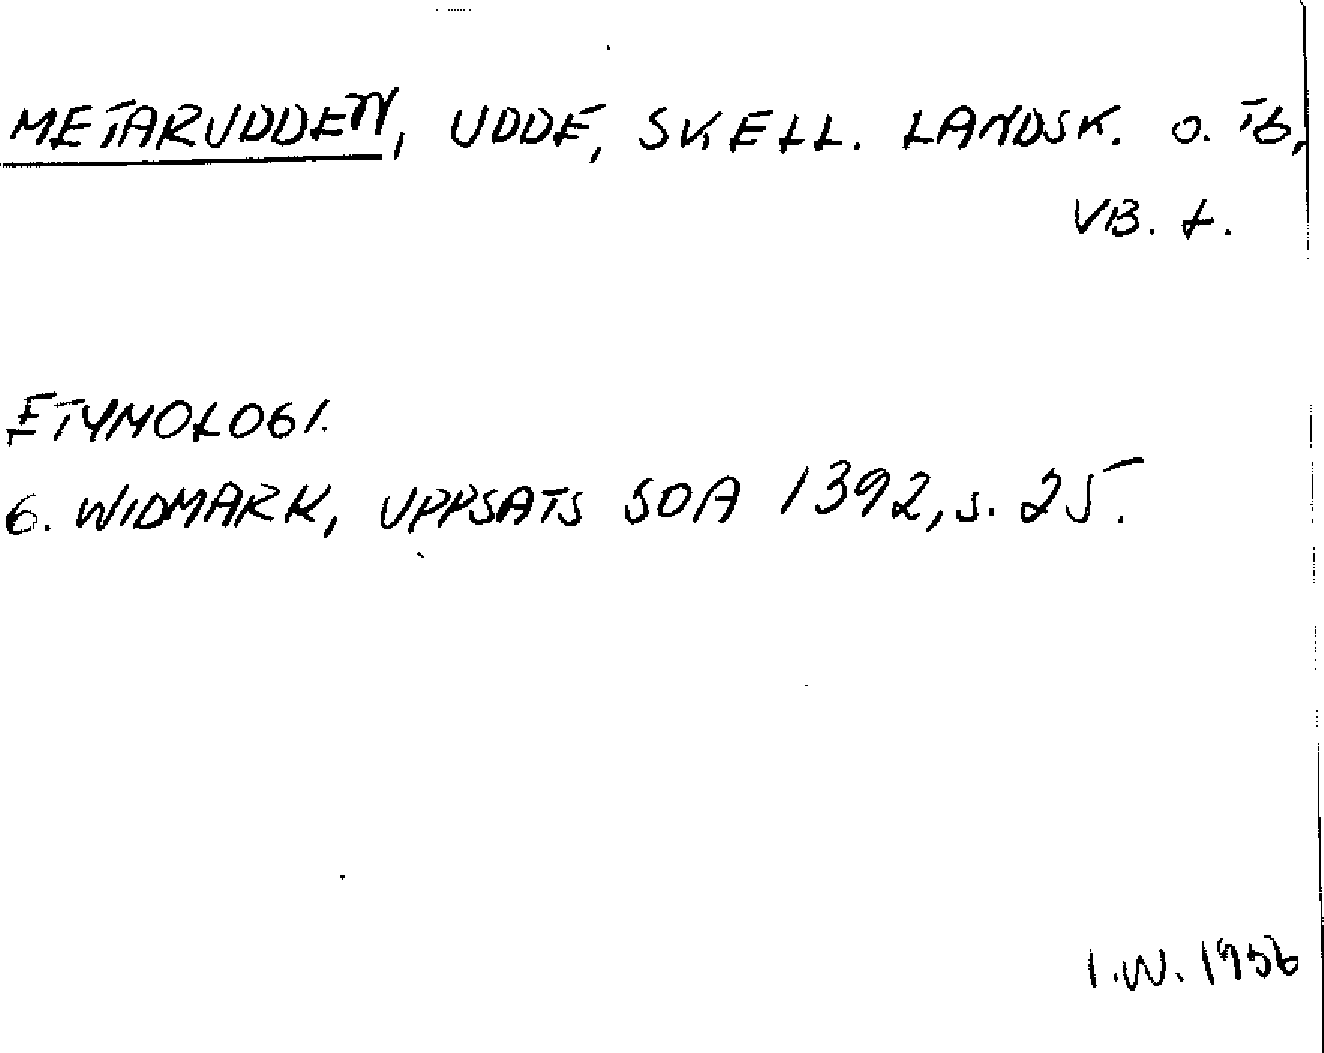 METARUDDEN, UDDE, SKELL. LANDSK. O. TB,
VB. L.
ETYMOLOGI.
G. WIDMARK, UPPSATS SOA 1392, s. 25.
I.W. 1956